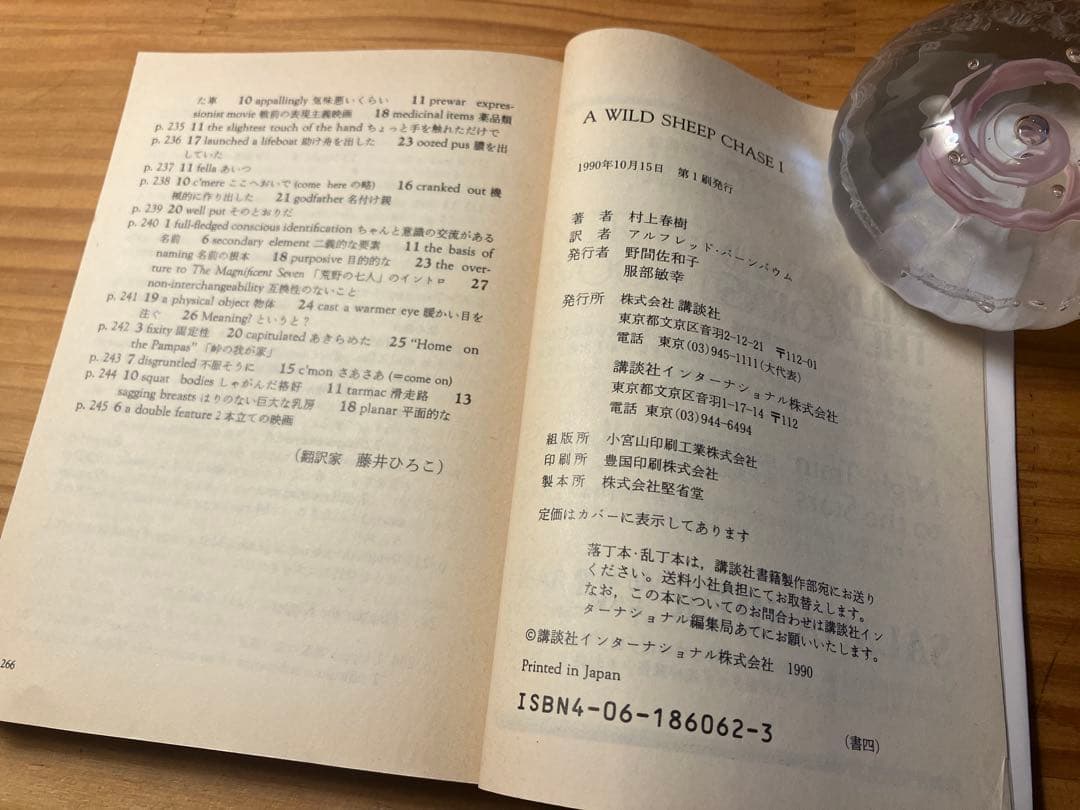 た車 10 appallingly 気味悪いくらい 11 prewar expres-
sionist movie 戦前の表現主義映画 18 medicinal items 薬品類
p. 235 11 the slightest touch of the hand ちょっと手を触れただけで
p. 236 17 launched a lifeboat 助け舟を出した 23 oozed pus 膿を出
していた
p. 237 11 fella あいつ
p. 238 10 c'mere ここへおいで (come here の略) 16 cranked out 機
械的に作り出した 21 godfather 名付け親
p. 239 20 well put そのとおりだ
p. 240 1 full-fledged conscious identification ちゃんと意識の交流がある
名前 6 secondary element 二義的な要素 11 the basis of
naming 名前の根本 18 purposive 目的的な 23 the over-
ture to The Magnificent Seven 「荒野の七人」のイントロ 27
non-interchangeability 互換性のないこと
p. 241 19 a physical object 物体 24 cast a warmer eye 暖かい目を
注ぐ 26 Meaning? というと?
p. 242 3 fixity 固定性 20 capitulated あきらめた 25 "Home on
the Pampas" 「峠の我が家」
p. 243 7 disgruntled 不服そうに 15 c'mon さあさあ (=come on)
p. 244 10 squat bodies しゃがんだ格好 11 tarmac 滑走路 13
sagging breasts はりのない巨大な乳房 18 planar 平面的な
p. 245 6 a double feature 2本立ての映画
(翻訳家 藤井ひろこ)
266
A WILD SHEEP CHASE I
1990年10月15日 第1刷発行
著者 村上春樹
訳者 アルフレッド・バーンバウム
発行者 野間佐和子
服部敏幸
発行所 株式会社 講談社
東京都文京区音羽2-12-21 〒112-01
電話 東京(03)945-1111(大代表)
講談社インターナショナル株式会社
東京都文京区音羽1-17-14 〒112
電話 東京(03)944-6494
組版所 小宮山印刷工業株式会社
印刷所 豊国印刷株式会社
製本所 株式会社堅省堂
定価はカバーに表示してあります
落丁本・乱丁本は，講談社書籍製作部宛にお送り
ください。送料小社負担にてお取替えします。
なお，この本についてのお問合わせは講談社イン
ターナショナル編集局あてにお願いいたします。
©講談社インターナショナル株式会社 1990
Printed in Japan
ISBN4-06-186062-3
(書四)